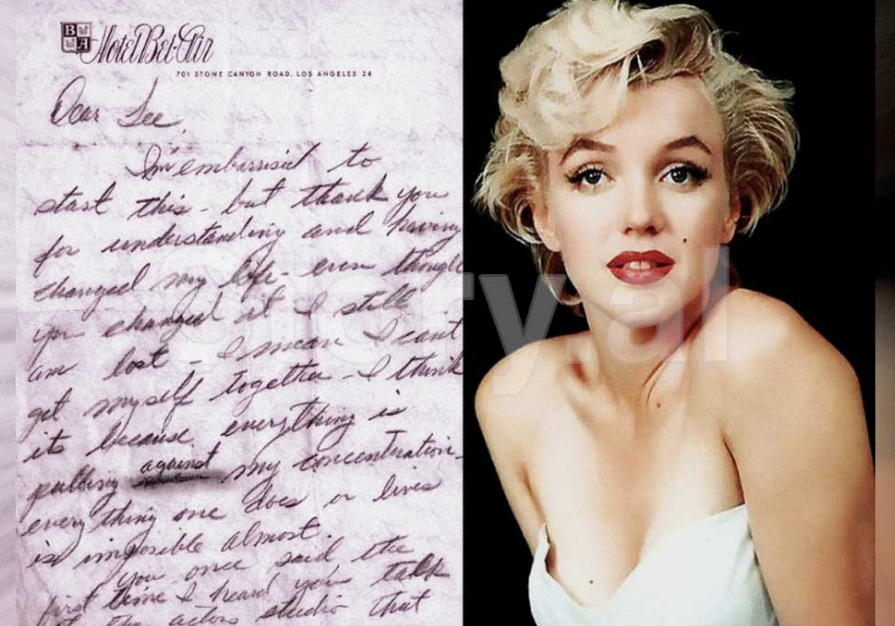 B A Hotel Bel-Air
701 STONE CANYON ROAD, LOS ANGELES 24
Dear Lee,
I'm embarrisied to
start this - but thank you
for understanding and having
changed my life - even though
you changed it I still
am lost - I mean I can't
get myself together - I think
its because everything is
pulling against my concentration -
everything one does or lives
is impossible almost.
you once said the
first time I heard you talk
at the actors studio that